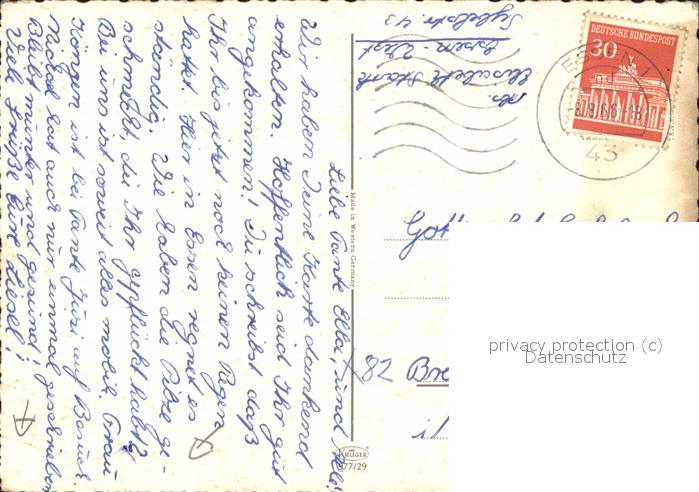 Liebe Tante Elka, und
Wir haben Deine Karte dankend
erhalten. Hoffentlich seid Ihr gut
angekommen! Du schreibst daß
Ihr bis jetzt noch keinen Regen
hattet. Hier in Essen regnet es
ständig. Wie haben die Pilze ge-
schmeckt, die Ihr gepflückt habt?
Bei uns ist soweit alles mobil. Frau
ist bei Tante auf Besuch.
hat auch nur einmal geschrieben
Bleibt munter und gesund!
Viele Grüße Eure Liesel!
Abs.
Elisabeth
Essen-West
43
DEUTSCHE BUNDESPOST
30
ESSEN 1
43
Made in Western Germany
82
i/
KRÜGER
977/29
privacy protection (c)
Datenschutz